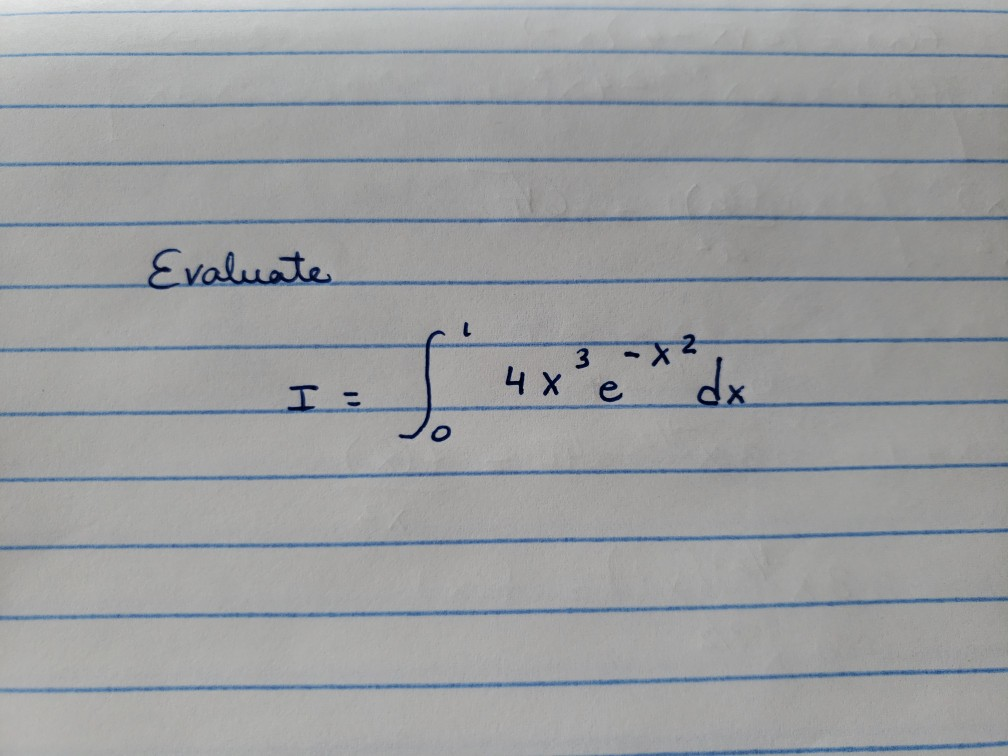 Evaluate
I = ∫₀¹ 4x³e^(-x²) dx